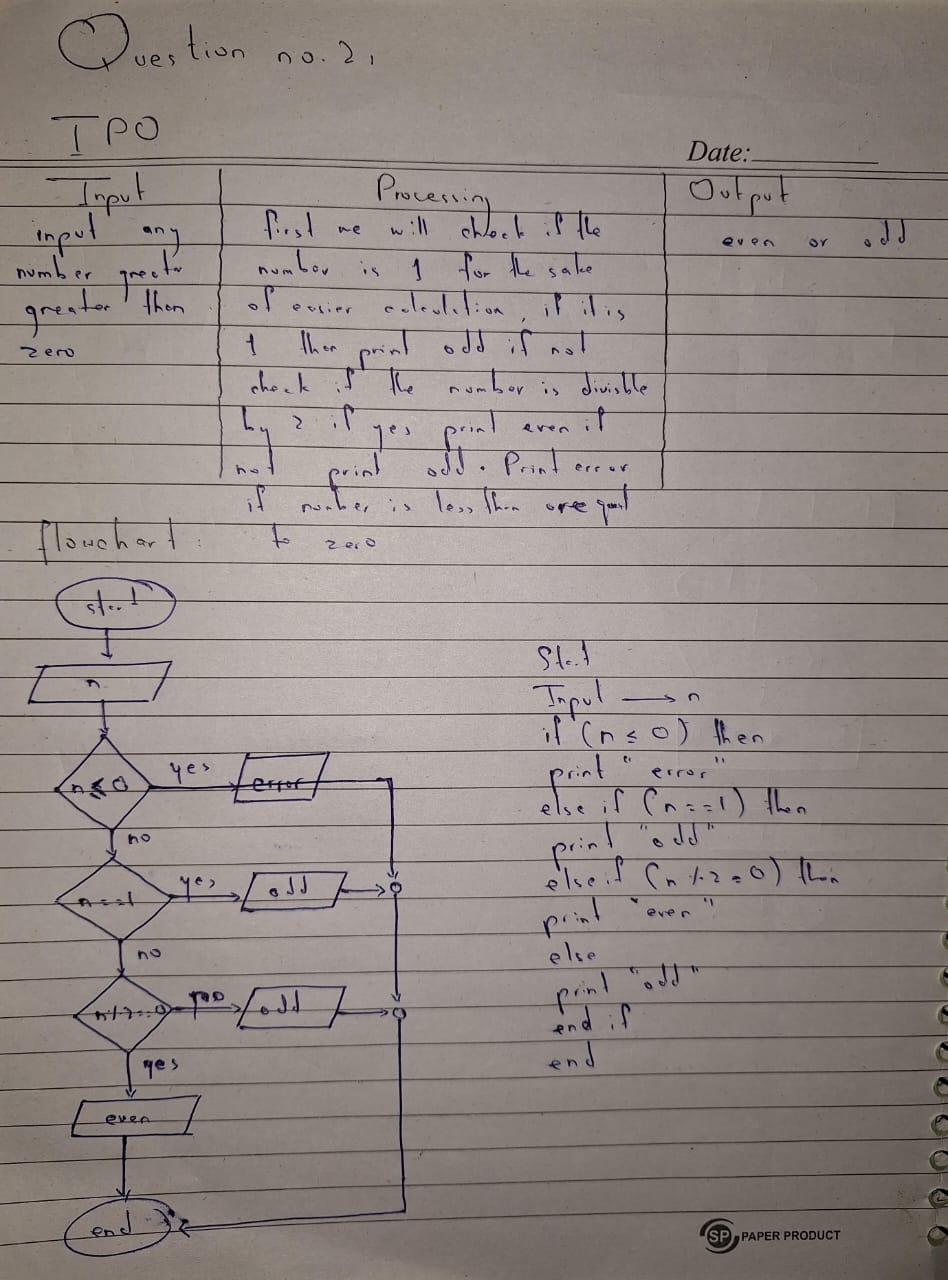 Question no. 2,
IPO
Date:
Input
input any
number greater
greater than
zero
Processing
first we will check if the
number is 1 for the sake
of easier calculation, if it is
1 then print odd if not
check if the number is divisble
by 2 if yes print even if
not print odd. Print error
if number is less than or equal
to zero
Output
even or odd
flowchart:
start
n
n ≤ 0
yes
error
no
n==1
yes
odd
no
n%2==0
no
odd
yes
even
end
Start
Input → n
if (n ≤ 0) then
print "error"
else if (n==1) then
print "odd"
else if (n%2=0) then
print "even"
else
print "odd"
end if
end
SP PAPER PRODUCT